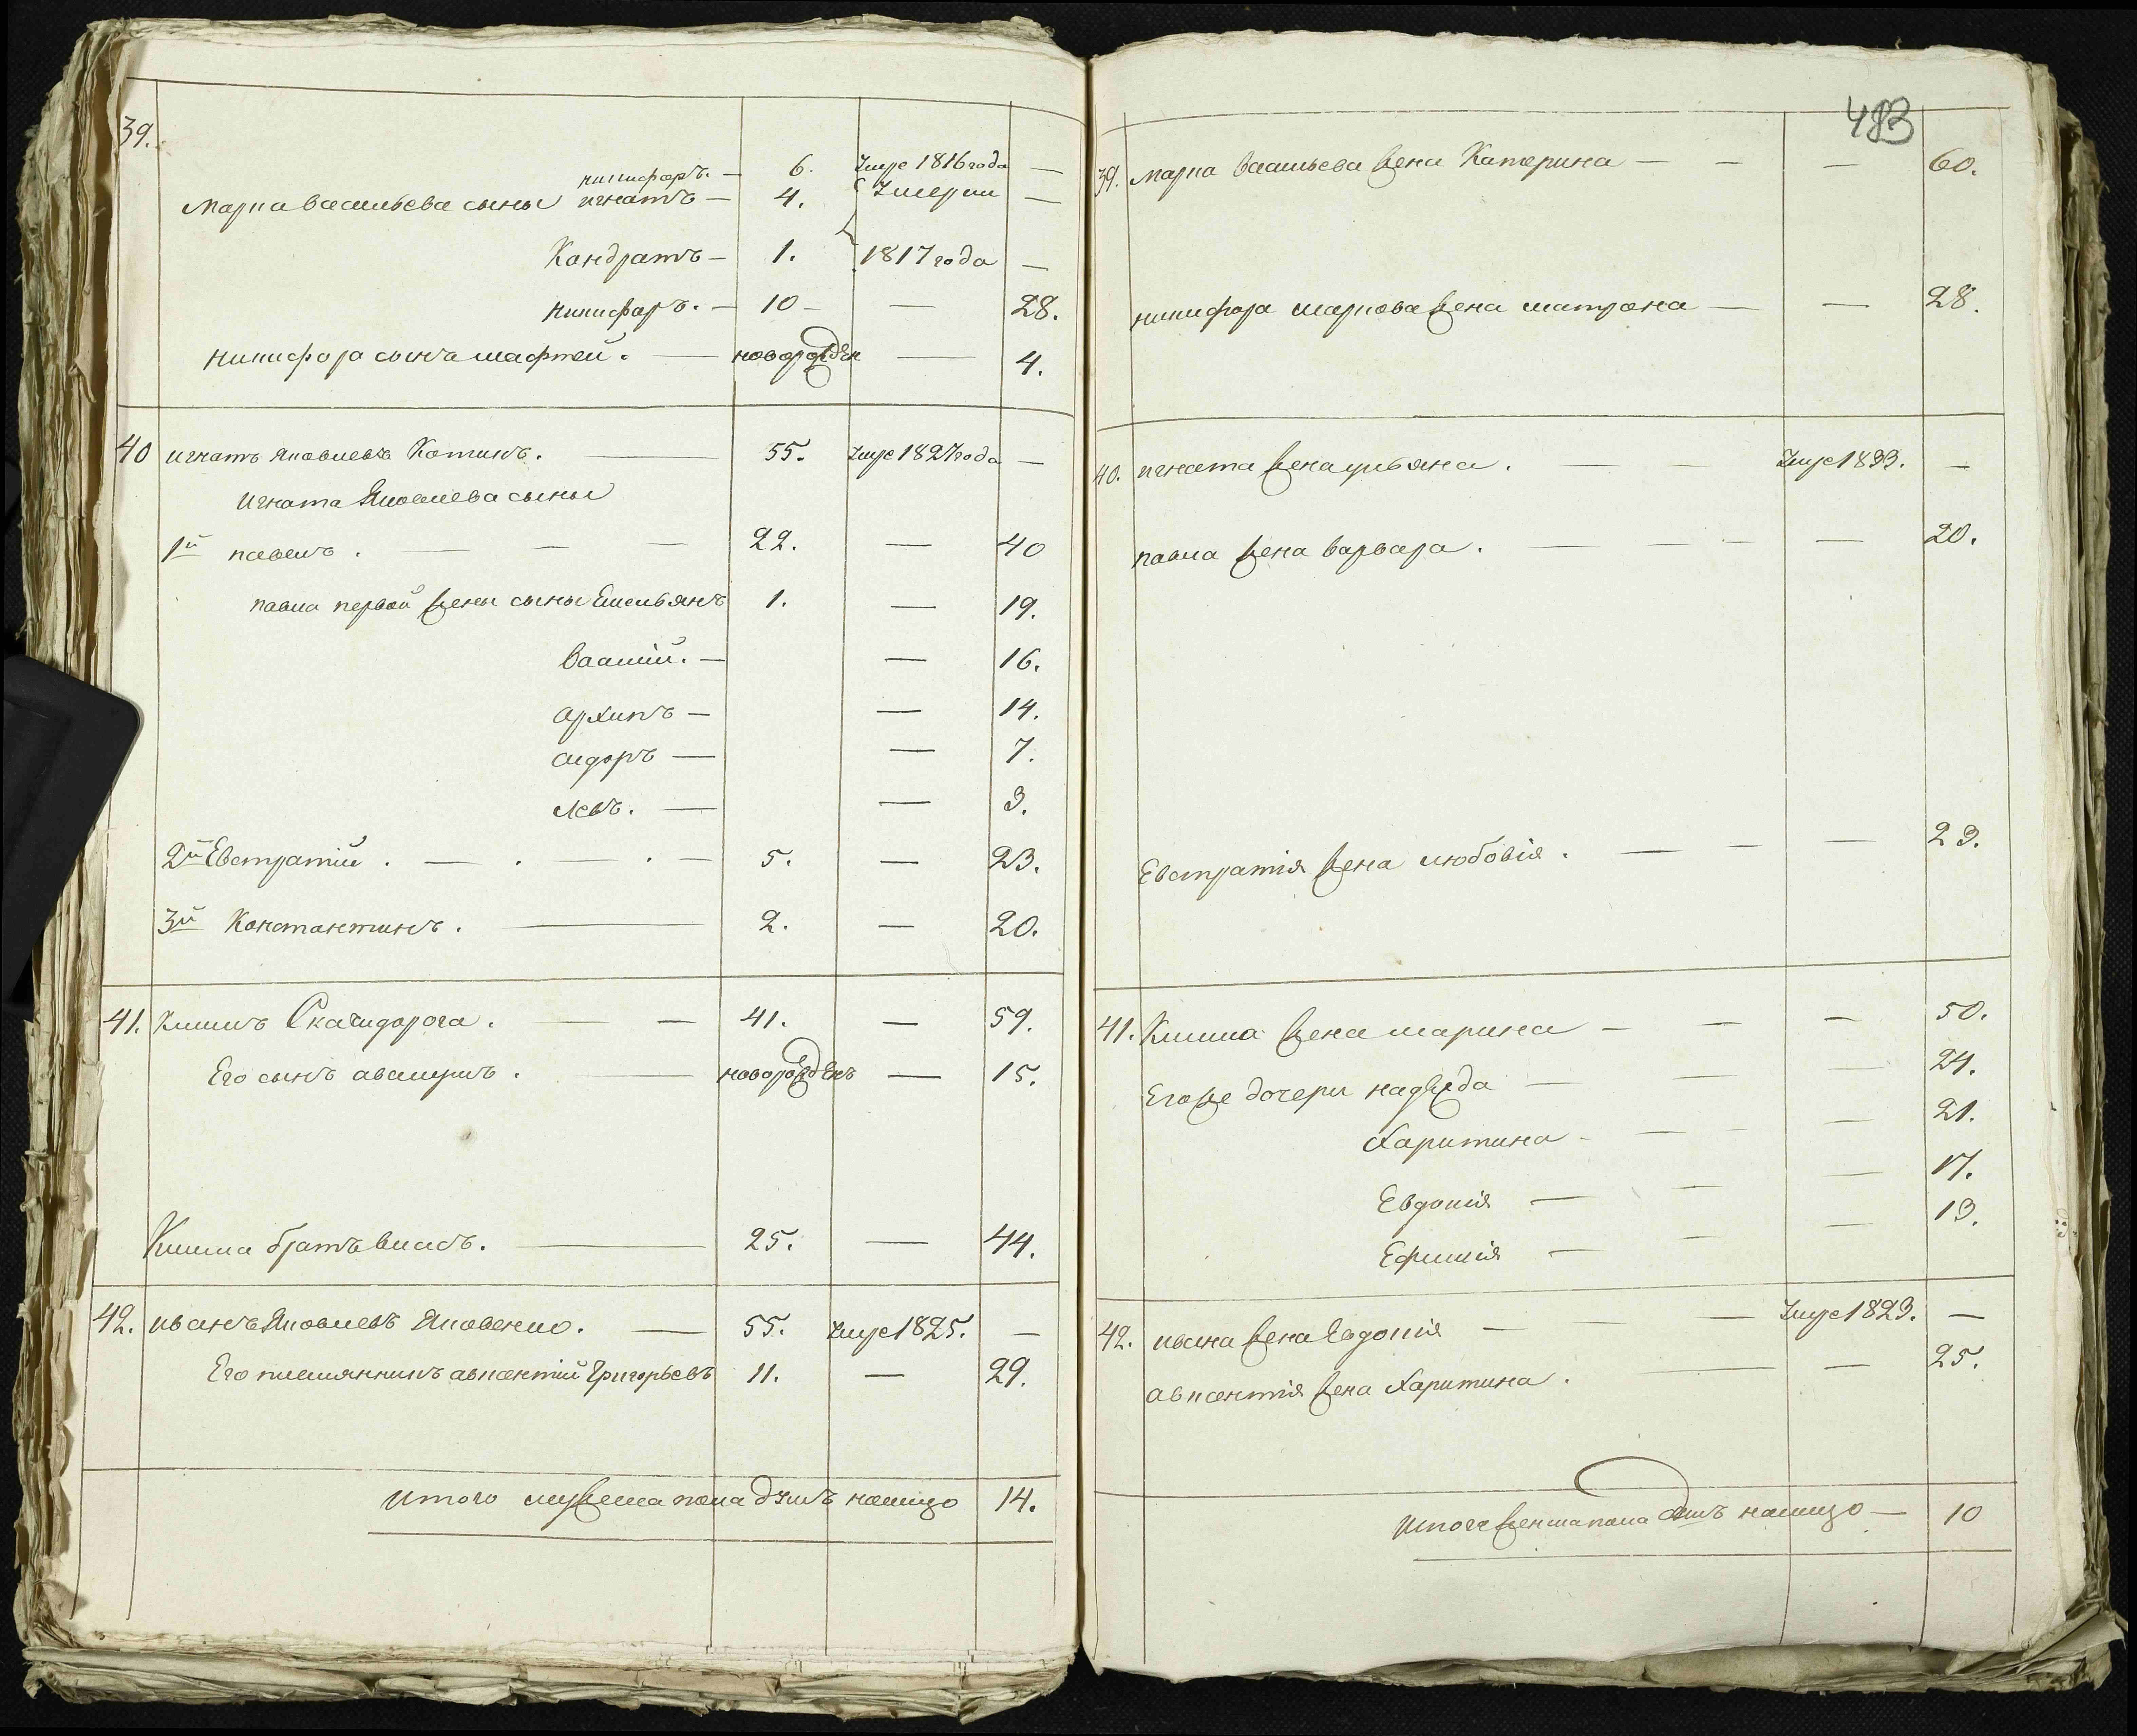 39.
никифоръ. — 6. умре 1816 года —
Марка Васильева сыны игнатъ — 4. умерли —
Кандратъ — 1. 1817 года —
никифаръ. — 10 — — 28.
никифора сынъ мафтей. — новорожден — 4.
40 игнатъ яковлевъ Котикъ. — 55. умре 1827 года —
игната Яковлева сыны
1й павелъ. — — — 22. — 40
павла первой жены сыны Емельянъ 1. — 19.
Василій. — — 16.
архипъ — — 14.
сидоръ — — 7.
левъ. — — 3.
2й Евстратий. — . — . — 5. — 23.
3й Константинъ. — 2. — 20.
41. Климъ Скачидорога. — — 41. — 59.
Его сынъ авакумъ. — новорожденъ — 15.
Клима братъ власъ. — 25. — 44.
42. иванъ Яковлевъ Яковенко. — 55. умре 1825. —
Его племянникъ авксентий Григорьевъ 11. — 29.
Итого мужеска пола душъ налицо 14.
483
39. марка васильева жена Катерина — — — 60.
никифора маркова жена матрона — — 28.
40. игната жена ульяна. — — умре 1833. —
павла жена варвара. — — — — 20.
Евстратія жена любовія. — — — 23.
41. Клима жена марина — — — 50.
Егоже дочери надежда — — — 24.
Харитина — — — — 21.
Евдокия — — — 17.
Ефимія — — — 13.
42. ивана жена Евдокия — — — умре 1823. —
авксентія жена Харитина. — — 25.
Итого женска пола душъ налицо — 10